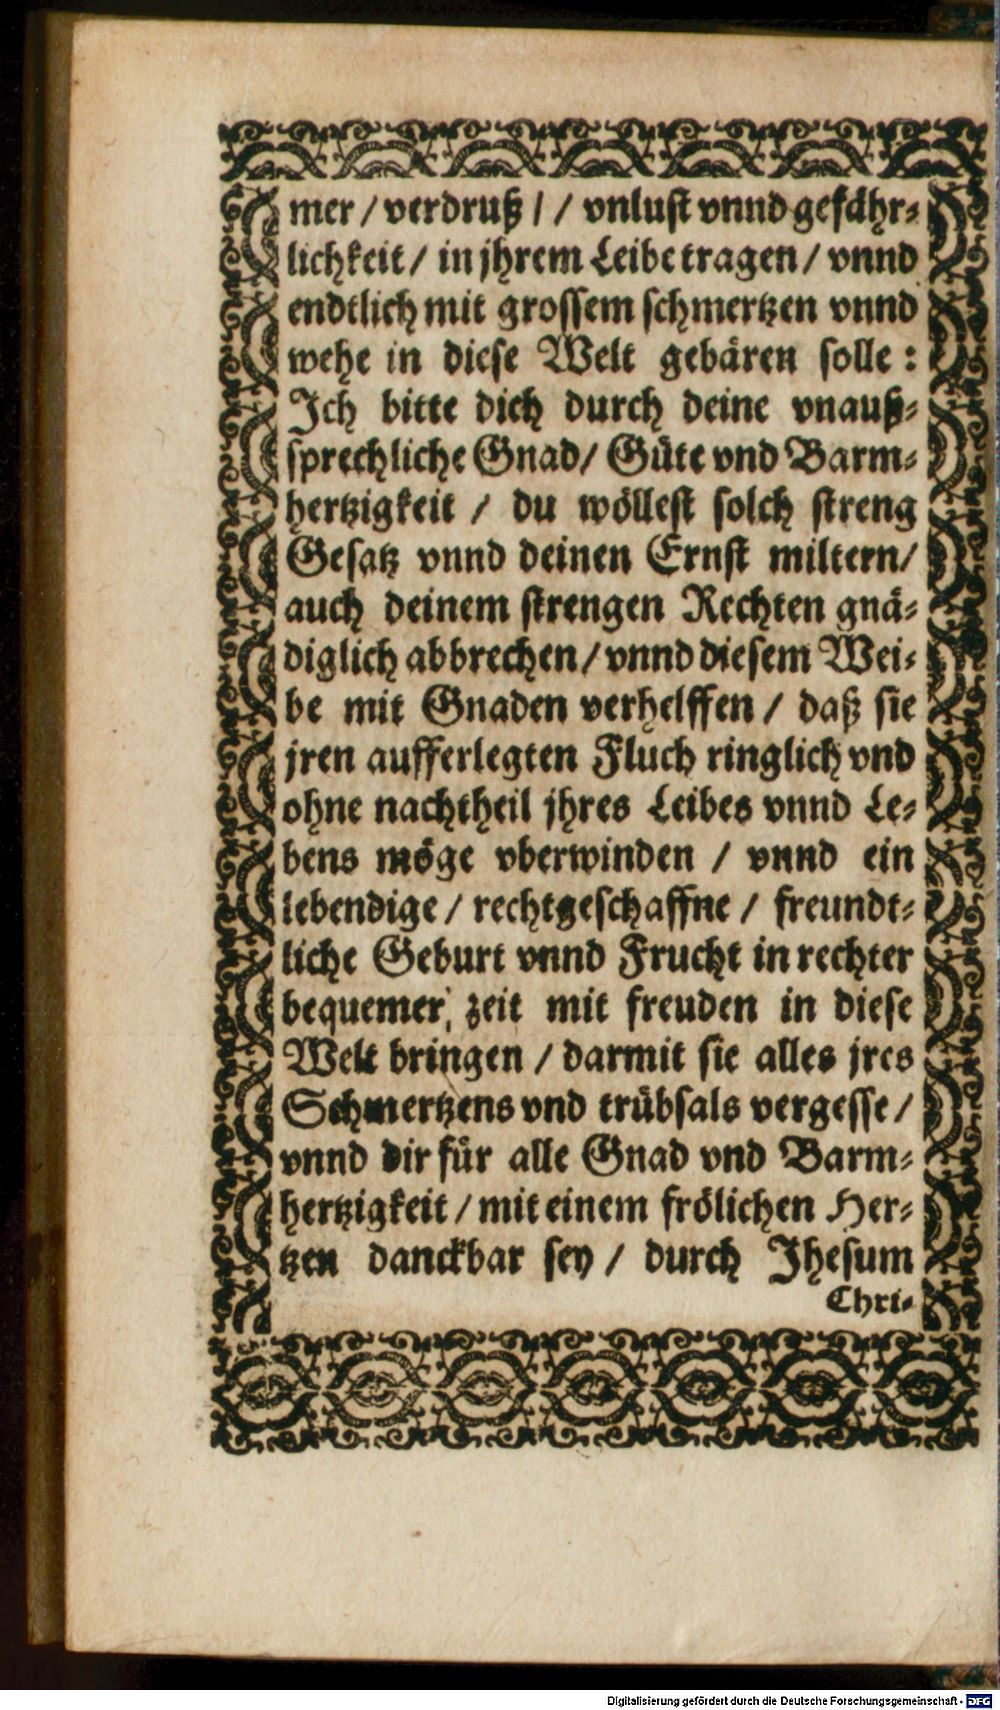 mer / verdruß / / vnlust vnnd gefähr⸗
lichkeit / in jhrem Leibe tragen / vnnd
endtlich mit grossem schmertzen vnnd
wehe in diese Welt gebären solle :
Ich bitte dich durch deine vnauß⸗
sprechliche Gnad / Güte vnd Barm⸗
hertzigkeit / du wöllest solch streng
Gesatz vnnd deinen Ernst miltern /
auch deinem strengen Rechten gnä⸗
diglich abbrechen / vnnd diesem Wei⸗
be mit Gnaden verhelffen / daß sie
jren aufferlegten Fluch ringlich vnd
ohne nachtheil jhres Leibes vnnd Le⸗
bens möge vberwinden / vnnd ein
lebendige / rechtgeschaffne / freundt⸗
liche Geburt vnnd Frucht in rechter
bequemer, zeit mit freuden in diese
Welt bringen / darmit sie alles jres
Schmertzens vnd trübsals vergesse /
vnnd dir für alle Gnad vnd Barm⸗
hertzigkeit / mit einem frölichen Her⸗
tzen danckbar sey / durch Jhesum
Chri⸗
Digitalisierung gefördert durch die Deutsche Forschungsgemeinschaft - DFG